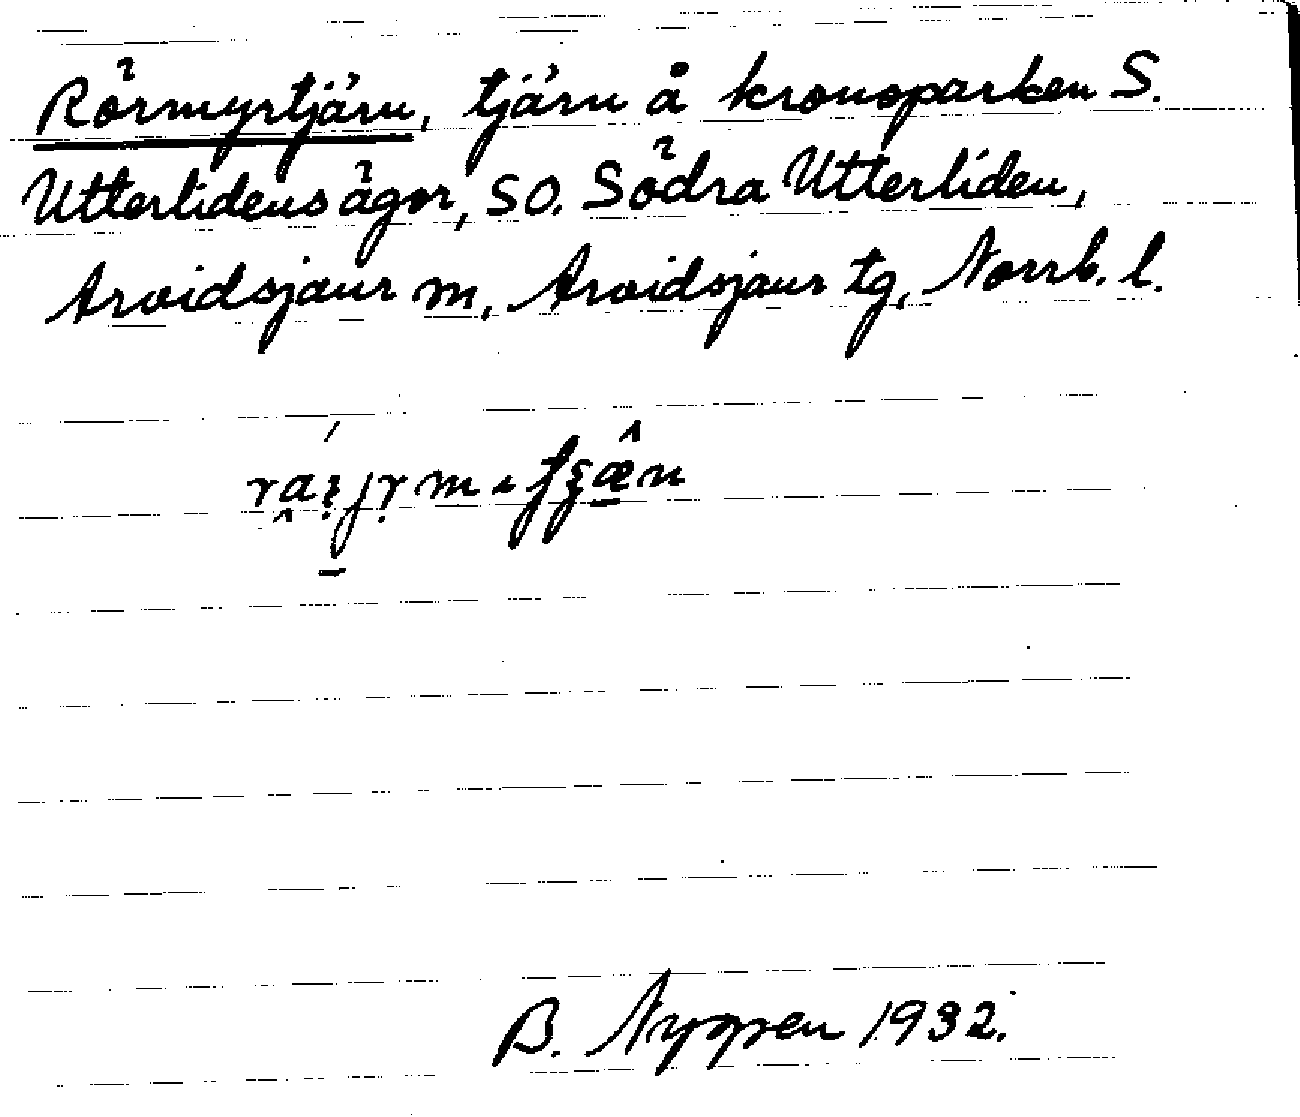 Rörmyrtjärn, tjärn å kronoparken S.
Utterlidens ägor, SO. Södra Utterliden,
Arvidsjaur m, Arvidsjaur tg, Norrb. l.
B. Nygren 1932.